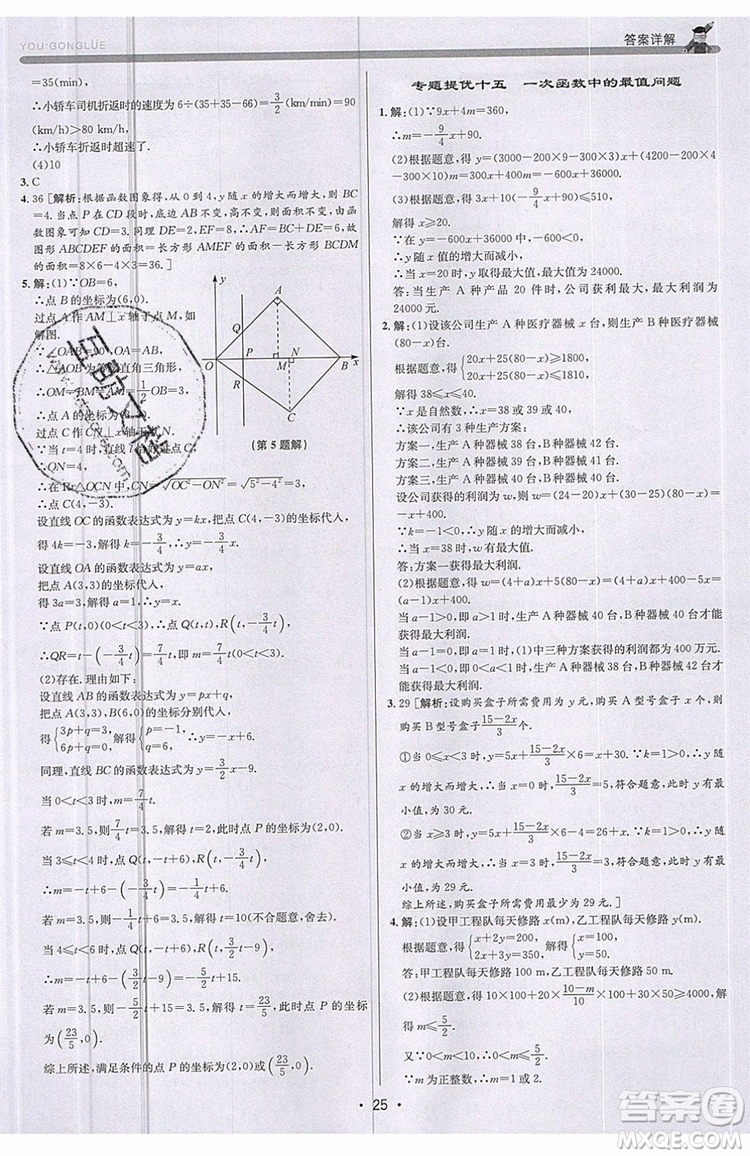 YOU·GONGLÜE
答案详解
=35(min),
∴小轿车司机折返时的速度为 6÷(35+35-66)=3/2(km/min)=90
(km/h)>80 km/h,
∴小轿车折返时超速了.
(4)10
3. C
4. 36 [解析:根据函数图象得,从 0 到 4,y 随 x 的增大而增大,则 BC
=4. 当点 P 在 CD 段时,底边 AB 不变,高不变,则面积不变,由函
数图象可得 CD=3. 同理 DE=2,EF=8. ∴AF=BC+DE,故
图形 ABCDEF 的面积=长方形 AMEF 的面积-长方形 BCDM
的面积=8×6-4×3=36.]
5. 解:(1)∵OB=6,
∴点 B 的坐标为(6,0).
过点 A 作 AM⊥x 轴于点 M,如
解图.
∵∠OAB=90°,
∴△AOB 为等腰直角三角形,
∴AM=OM=1/2OB=3,
∴点 A 的坐标为(3,3).
过点 C 作 CN⊥x 轴于点 N.
∵当 t=4 时,直线 l 恰好过点 C.
∴ON=4,
∴在 Rt△OCN 中,CN=√(OC²-ON²)=√(5²-4²)=3,
∴点 C(4,-3).
设直线 OC 的函数表达式为 y=kx,把点 C(4,-3)的坐标代入,
得 4k=-3,解得 k=-3/4,∴y=-3/4x.
设直线 OA 的函数表达式为 y=ax,
把点 A(3,3)的坐标代入,
得 3a=3,解得 a=1,∴y=x.
∵点 P(t,0)(0<t<3),∴点 Q(t,t),R(t,-3/4t),
∴QR=t-(-3/4t)=7/4t,即 m=7/4t.
(2)存在. 理由如下:
设直线 AB 的函数表达式为 y=px+q,
把点 A(3,3),B(6,0)的坐标分别代入,
得{3p+q=3, 6p+q=0,解得{p=-1, q=6, ∴y=-x+6.
同理,直线 BC 的函数表达式为 y=3/2x-9.
当 0<t<3 时,m=7/4t.
若 m=7/2,则7/4t=7/2,解得 t=2,此时点 P 的坐标为(2,0).
当 3≤t<4 时,点 Q(t,-t+6),R(t,-3/4t),
∴m=-t+6-(-3/4t)=-1/4t+6.
若 m=7/2,则-1/4t+6=7/2,解得 t=10(不合题意,舍去).
当 4≤t<6 时,点 Q(t,-t+6),R(t,3/2t-9),
∴m=-t+6-(3/2t-9)=-5/2t+15.
若 m=7/2,则-5/2t+15=7/2,解得 t=23/5,此时点 P 的坐标
为(23/5,0).
综上所述,满足条件的点 P 的坐标为(2,0)或(23/5,0).
y
A
Q
O
P
M
N
B
x
R
C
(第 5 题解)
专题提优十五 一次函数中的最值问题
1. 解:(1)∵9x+4m=360,
∴m=-9/4x+90.
(2)根据题意,得 y=(3000-10×200)x+(-9/4x+90)×4×200
+(-3000)=-600x+24000.
(3)根据题意,得 3x+10(-9/4x+90)≤510,
解得 x≥20.
∵在 y=-600x+24000 中,k=-600<0,
∴y 随 x 值的增大而减小,
∴当 x=20 时,y 有最大值,最大值为 24000.
答:当生产 A 种产品 20 件时,公司获利最大,最大利润为
24000 元.
2. 解:(1)设该公司生产 A 种医疗器械 x 台,则生产 B 种医疗器械
(80-x)台.
根据题意,得{20x+25(80-x)≥1800, 20x+25(80-x)≤1810,
解得 38≤x≤40.
∵x 是自然数,∴x=38 或 39 或 40,
∴该公司有 3 种生产方案:
方案一,生产 A 种器械 38 台,B 种器械 42 台.
方案二,生产 A 种器械 39 台,B 种器械 41 台.
方案三,生产 A 种器械 40 台,B 种器械 40 台.
设公司获得的利润为 w,则 w=(24-20)x+(30-25)(80-x)=
-x+400.
∵k=-1<0,∴w 随 x 的增大而减小,
∴当 x=38 时,w 有最大值.
答:方案一获得最大利润.
(2)根据题意,得 w=(4+a)x+5(80-x)=4x+ax+400-5x=
(a-1)x+400.
当 a-1>0,即 a>1 时,生产 A 种器械 40 台,B 种器械 40 台才能
获得最大利润.
当 a-1=0,即 a=1 时,(1)中三种方案的利润都为 400 万元.
当 a-1<0,即 a<1 时,生产 A 种器械 38 台,B 种器械 42 台才能
获得最大利润.
3. 29 [解析:设购买盒子所需费用为 y 元,购买 A 型号盒子 x 个,则
购买 B 型号盒子(15-2x)/3个.
①当 0≤x<3 时,y=5x+(15-2x)/3×6=x+30. ∵k=1>0,∴y 随
x 的增大而增大,∴当 x=0 时,y 有最小值,最小值为 30 元.
②当 x≥3 时,y=5x+(15-2x)/3×6-4=26+x. ∵k=1>0,∴y 随
x 的增大而增大,∴当 x=3 时,y 有最小值,最小值为 29 元.
综上所述,购买盒子所需费用为 29 元.]
4. 解:(1)设甲工程队每天修路 x(m),乙工程队每天修路 y(m).
答:甲工程队每天修路 100 m,乙工程队每天修路 50 m.
(2)根据题意,得 10×100+20×(5/2)×50≥4000,
解得 m≤5/2.
又∵0<m<10,∴0<m≤5/2.
∵m 为正整数,∴m=1 或 2.
· 25 ·
互助文档
答案圈
MXQE.COM